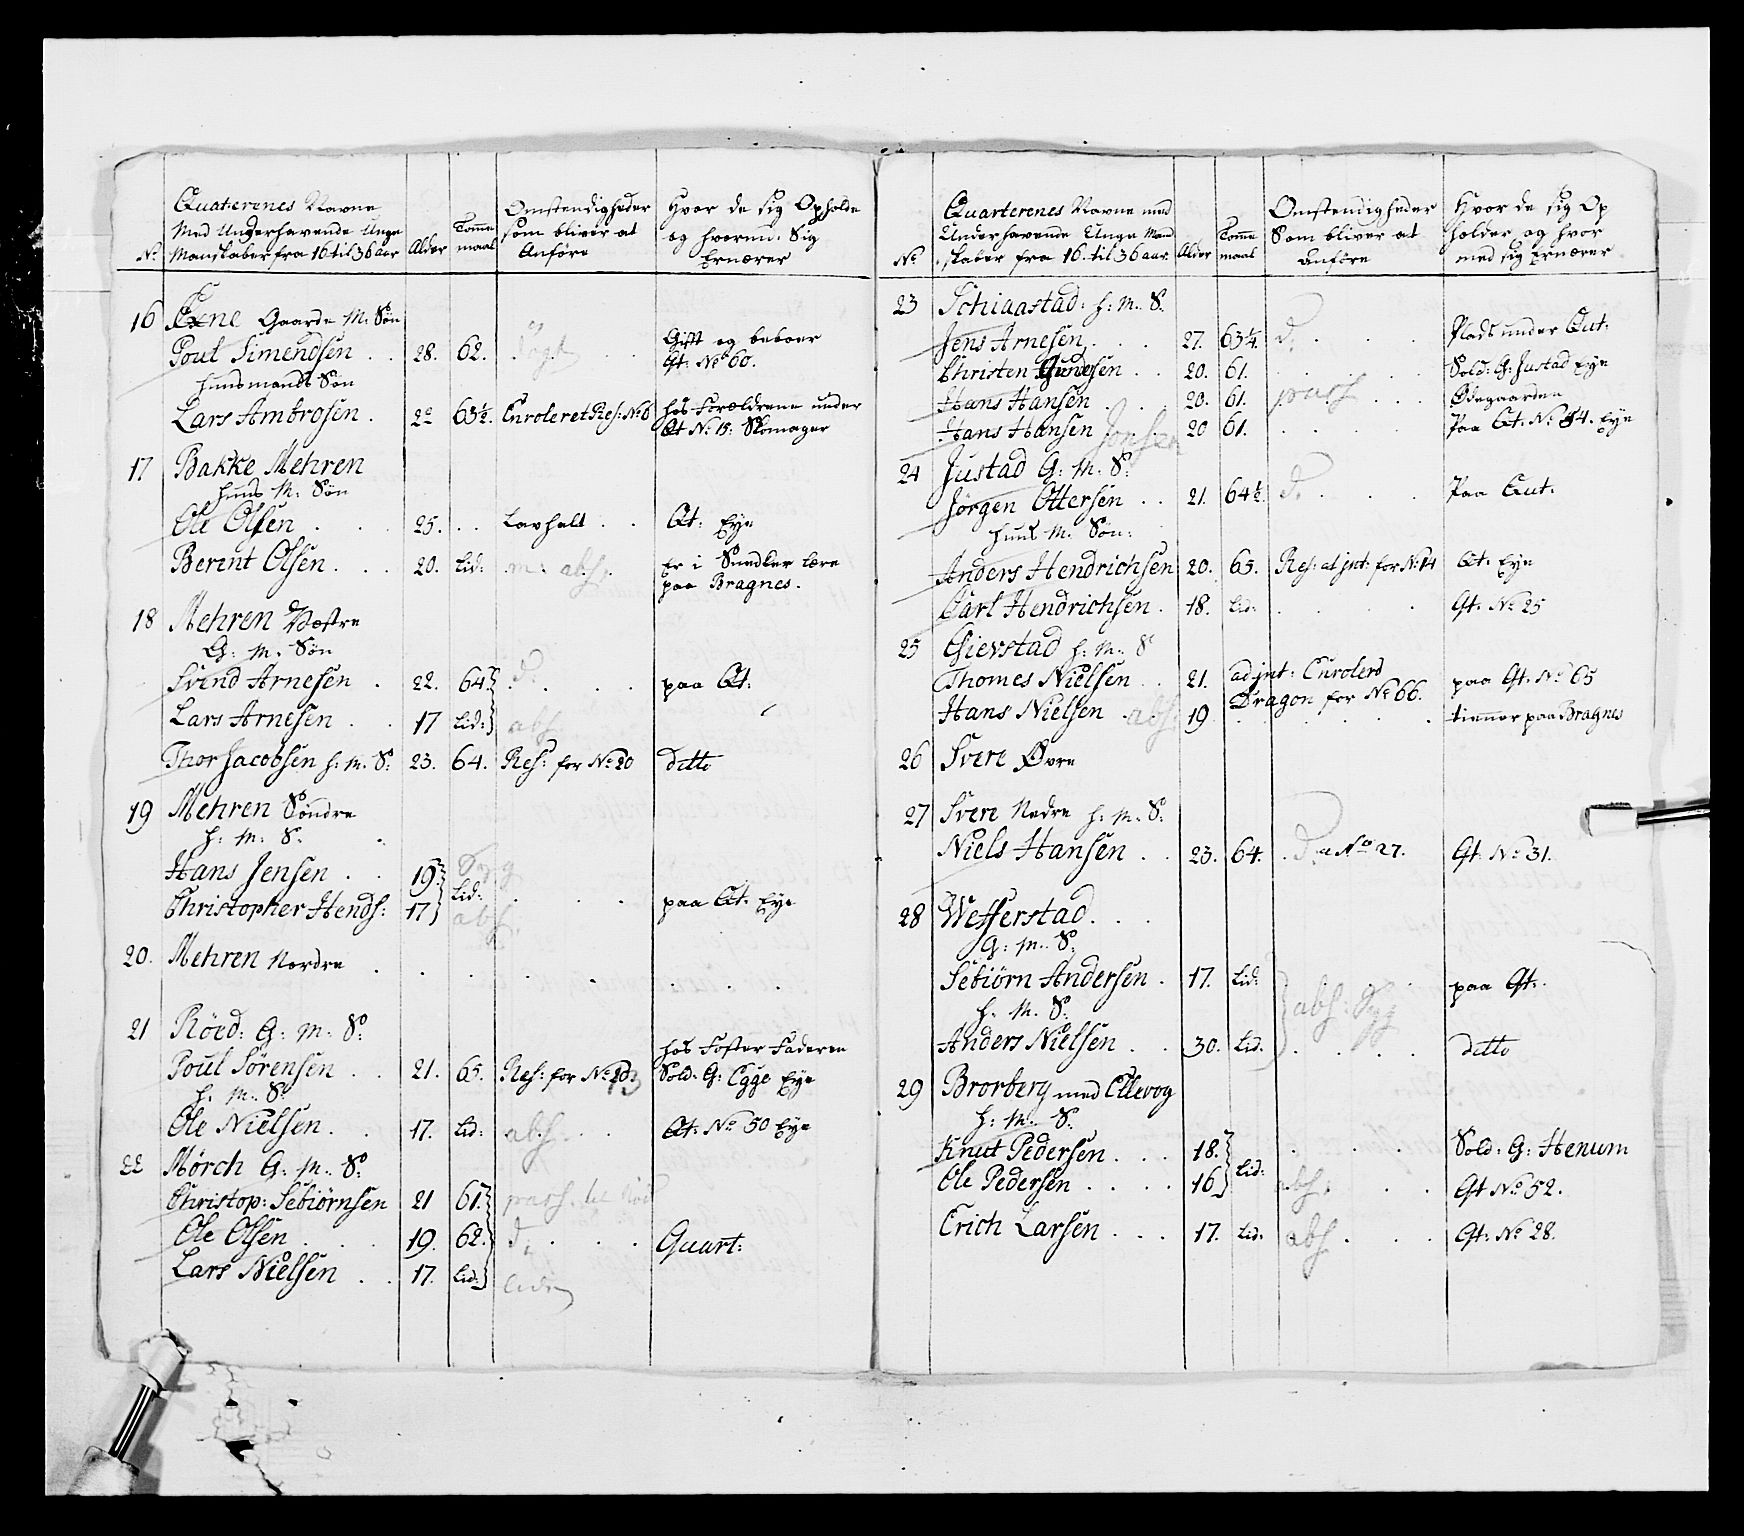 No
Quaterenes Navne
Med Underhavende Unge
Mandskaber fra 16 til 36 aar
Alder
Tomme
maal
Omstendigheder
som bliver at
Anføre
Hvor de sig Opholde
og hvormed Sig
Ernærer
16 Exne Gaards M: Søn
Poul Simensen . . 28. 62.
Gift og beboer
Qt: No 60.
Huusmands Søn
Lars Ambrosen . 63½. Enroleret Res: No 6 hos Forældrene under
Qt No: 15: Skomager
17 Bakke Mehren
Huus M: Søn
Ole Olsen . . . 25. . . Lavhalt . . Qt: Eye
Berent Olsen . . . 20. Lid: abs: Er i Snedker lære
paa Bragnes.
18 Mehren Vestre
G: M. Søn
Svend Arnesen . 22. 64. d: . . . paa Qt:
Lars Arnesen . . 17 Lid: abs
Thor Jacobsen H: M. S: 23. 64. Res: for No 20 ditto
19 Mehren Søndre
H: M: S:
Hans Jensen . . 19.
Lid:
Christopher Hends: 17 abs . . . paa Qt: Eye
20. Mehren Nordre . . . . . . . .
21 Röed: G: M: S:
hos Foster Faderen
Poul Sörensen . . 21. 65. Res: for No: Sold. G: Egge Eye
H. M. S:
Ole Nielsen . . 17. Lid: abs . . . Qt: No 50 Eye
22 Mörch G: M. S:
Christop: Sebiörnsen 21 61.
Ole Olsen . . . 19. 62. d: . . . Quart:
Lars Nielsen . . 17. Lid:
No
Quarterenes Navne med
Underhavende Unge Mand
skaber fra 16. til 36 aar
Alder
Tomme
maal
Omstendigheder
Som bliver at
anføre
Hvor de sig Op
holder og hvor
med sig Ernærer
23 Schiaastad: H: M. S.
Jens Arnesen . . . 27. 63¼. d: . . . Plads under Qut:
Christen . . 20. 61. . . . Sold: G: Justad Eye
Hans Hansen . . . 20. 61. . . . Ødegaarden
Hans Hansen Jonsen 20 61. . . . Paa Qt: No 54. Eye
24 Justad G: M. S:
Jörgen Ottersen . . 21. 64½. d. . . . Paa Qut:
Huus M. Søn:
Anders Hendrichsen 20. 65. Res: at jnt: for No: 14 Qt: Eye
Carl Hendrichsen . 18. Lid: . . . Qt: No 25
25 Gievstad H: M: S
Thomes Nielsen . . 21. adjnt: Enrolerd paa Qt: No 65
Dragon for No 66.
Hans Nielsen . abs: 19 . . . . tienner paa Bragnes
26 Svere Øvre
27 Svere Nedre H: M. S:
Niels Hansen . . 23. 64. . d: a No 27. Qt: No 31.
28 Wefferstad . . .
G: M: S:
Sebiörn Andersen . 17. Lid: paa Qt:
abs:
H. M. S:
Anders Nielsen . . 30. Lid. . . . . ditto
29 Brorberg med Ellevog
H: M. S:
Knut Pedersen . . . 18. . . . Sold: G: Henum
Lid:
Ole Pedersen . . . . 16 abs: . . Qt No 52.
Erich Larsen . . . 17. Lid: abs . . . Qt: No 28.